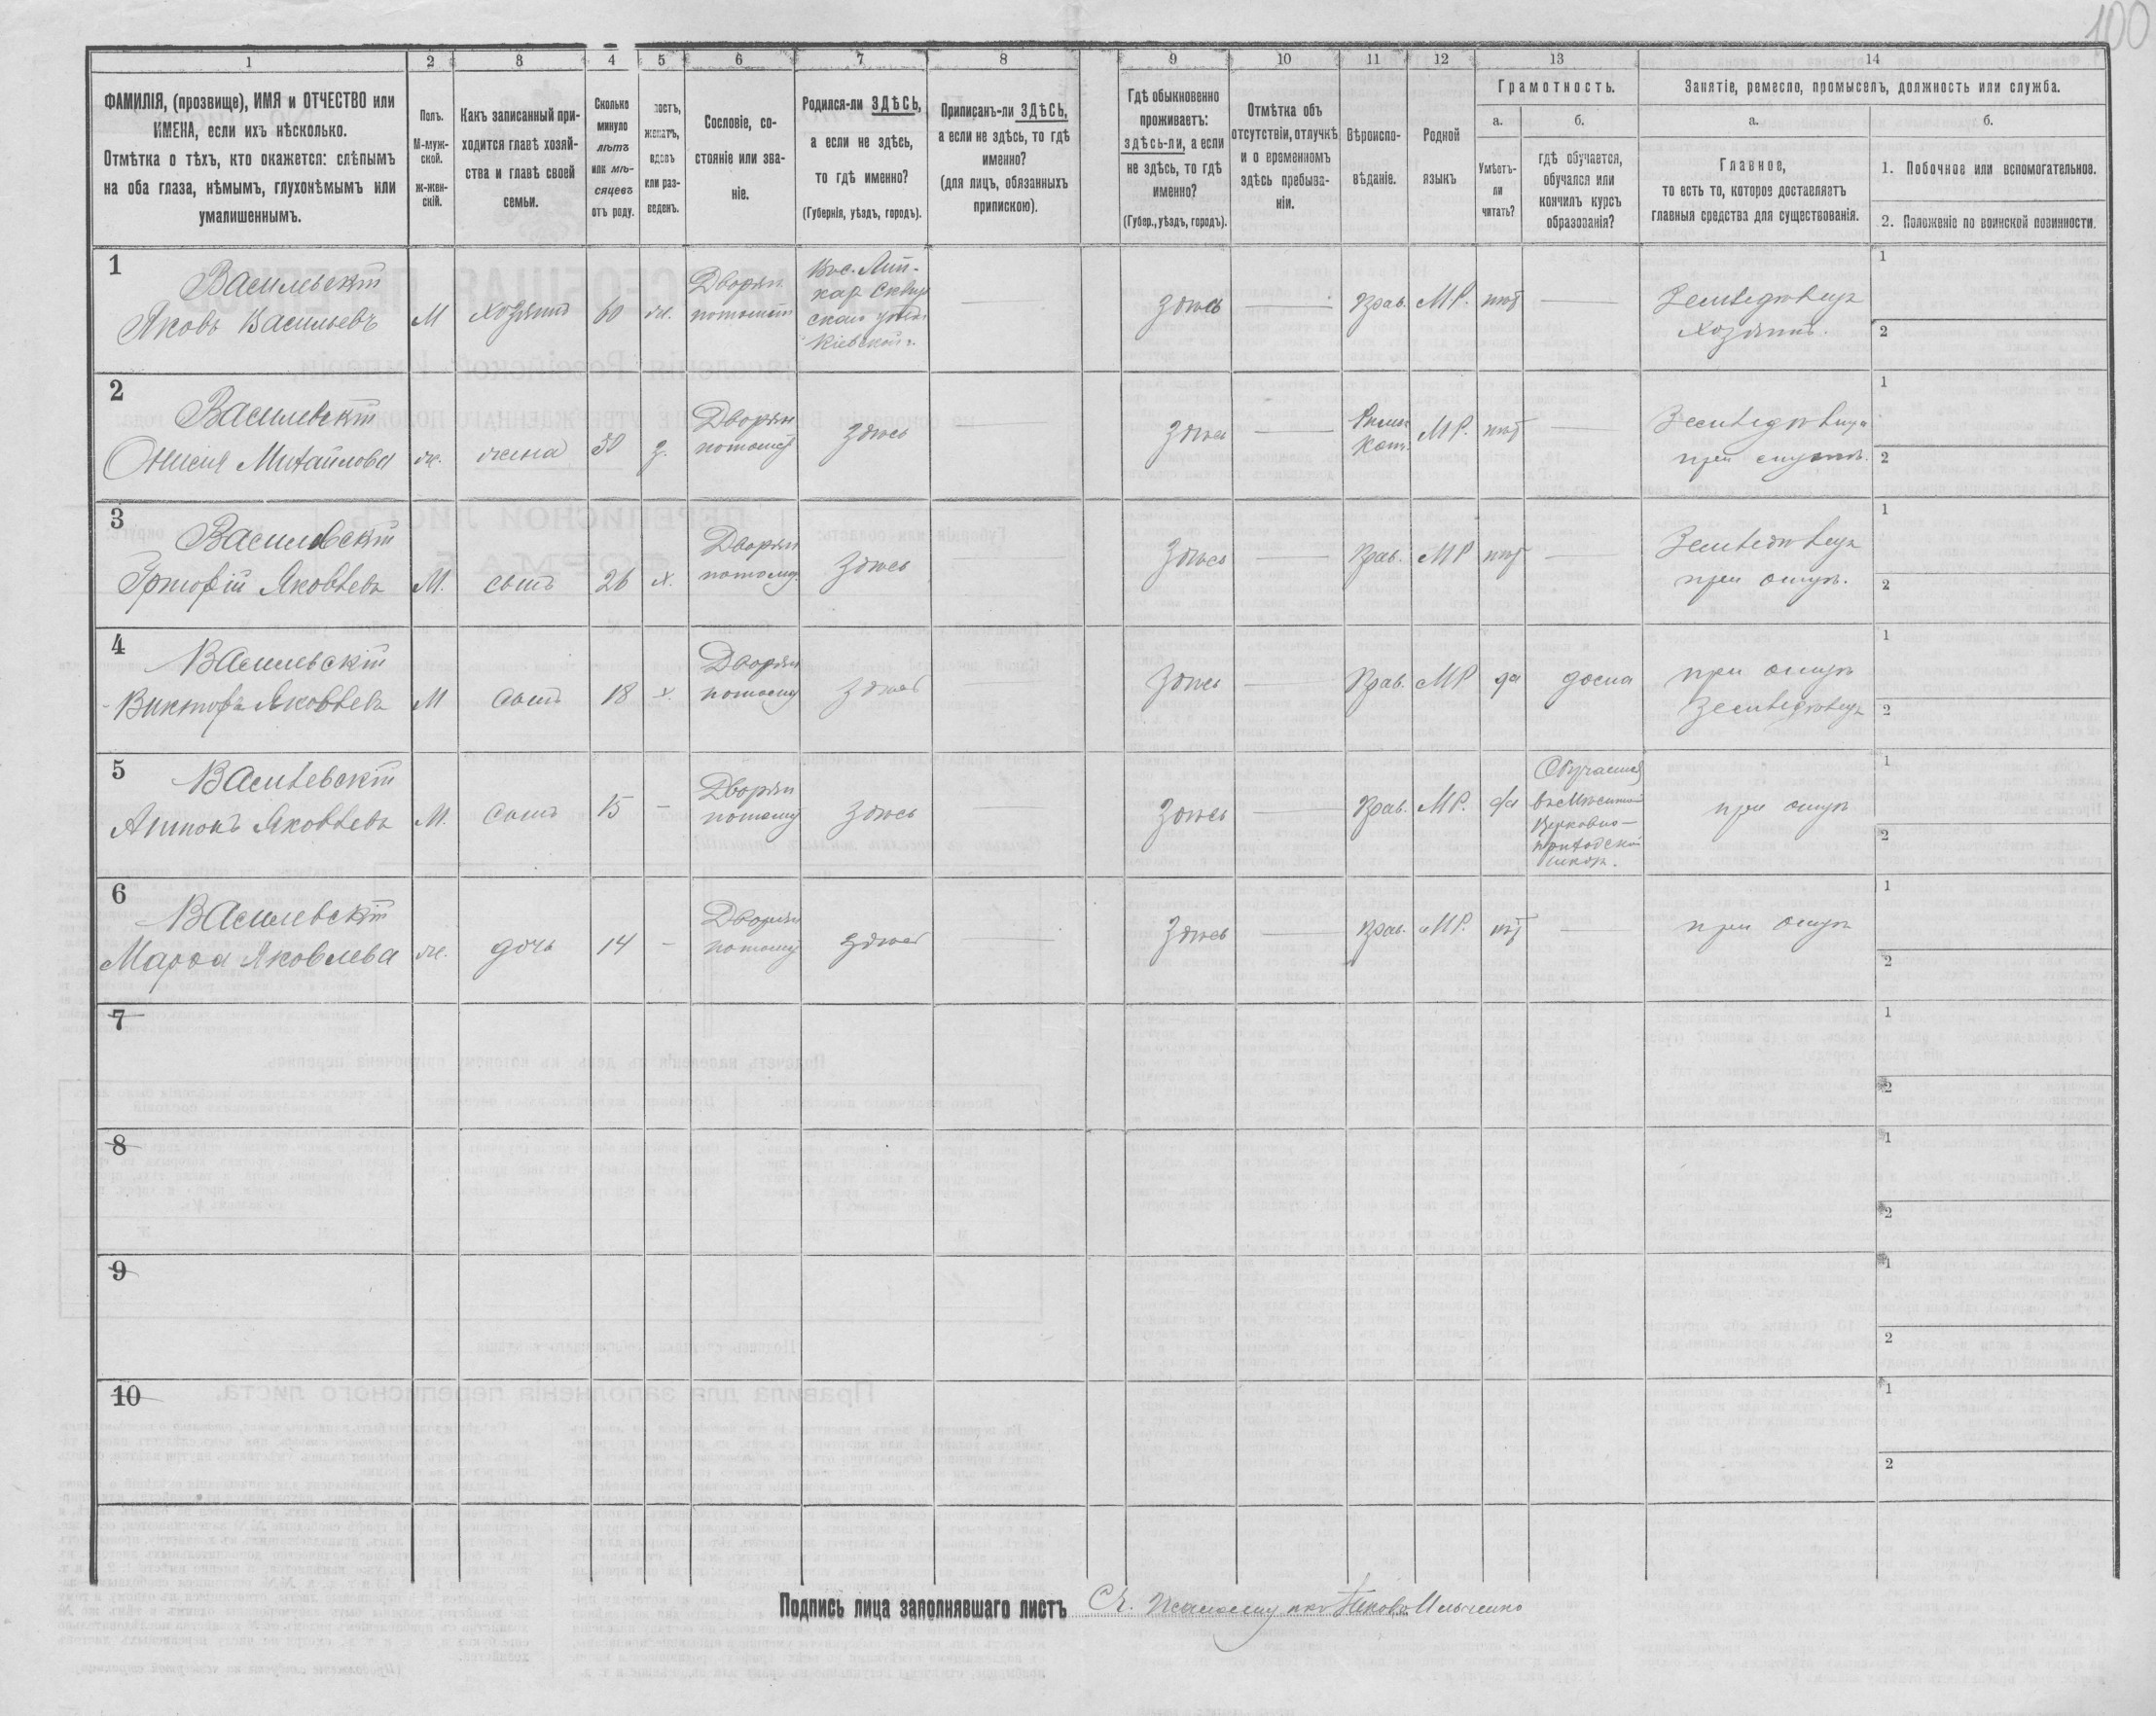 100
1
2
3
4
5
6
7
8
9
10
11
12
13
14
ФАМИЛІЯ, (прозвище), ИМЯ и ОТЧЕСТВО или
ИМЕНА, если ихъ нѣсколько.
Отмѣтка о тѣхъ, кто окажется: слѣпымъ
на оба глаза, нѣмымъ, глухонѣмымъ или
умалишеннымъ.
Полъ.
М-муж-
ской.
ж-жен-
скій.
Какъ записанный при-
ходится главѣ хозяй-
ства и главѣ своей
семьи.
Сколько
минуло
лѣтъ
или мѣ-
сяцевъ
отъ роду.
лостъ,
женатъ,
вдовъ
или раз-
веденъ.
Сословіе, со-
стояніе или зва-
ніе.
Родился-ли ЗДѢСЬ,
а если не здѣсь,
то гдѣ именно?
(Губернія, уѣздъ, городъ).
Приписанъ-ли ЗДѢСЬ,
а если не здѣсь, то гдѣ
именно?
(для лицъ, обязанныхъ
припискою).
Гдѣ обыкновенно
проживаетъ:
здѣсь-ли, а если
не здѣсь, то гдѣ
именно?
(Губер., уѣздъ, городъ).
Отмѣтка объ
отсутствіи, отлучкѣ
и о временномъ
здѣсь пребыва-
ніи.
Вѣроиспо-
вѣданіе.
Родной
языкъ
Грамотность.
а.
Умѣетъ-
ли
читать?
б.
гдѣ обучается,
обучался или
кончилъ курсъ
образованія?
Занятіе, ремесло, промыселъ, должность или служба.
а.
Главное,
то есть то, которое доставляетъ
главныя средства для существованія.
б.
1. Побочное или вспомогательное.
2. Положеніе по воинской повинности.
1
Василевскій
Яковъ Васильевъ
М
хозяинъ
60
ж.
Дворян.
Кіевской г.
здѣсь
Прав.
М.Р.
нѣт
хозяинъ.
1
2
2
Василевскій
Михайлова
ж.
жена
50
з.
Дворян
здѣсь
здѣсь
Кат.
М.Р.
нѣт
1
2
3
Василевскій
Яковлевъ
М.
сынъ
26
х.
Дворян
здѣсь
здѣсь
Прав.
М.Р
нѣт
при отцѣ.
1
2
4
Василевскій
Викторъ Яковлевъ
М
сынъ
18
х.
Дворян
здѣсь
здѣсь
Прав.
М.Р
да
дома
при отцѣ
1
2
5
Василевскій
Антонъ Яковлевъ
М.
сынъ
15
Дворян
здѣсь
здѣсь
Прав.
М.Р.
да
Обучается
въ Мѣстной
Церковно-
приходской
школѣ.
при отцѣ
1
2
6
Василевскій
Марѳа Яковлева
ж.
дочь
14
Дворян
здѣсь
здѣсь
Прав.
М.Р.
нѣт
при отцѣ
1
2
7
1
2
8
1
2
9
1
2
10
1
2
Подпись лица заполнявшаго листъ